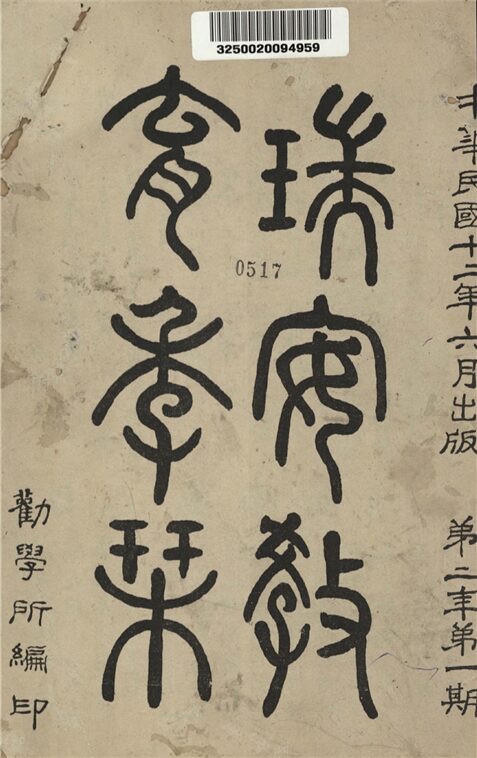 3250020094959
中華民國十二年六月出版 第二年第一期
瑞安教
育季栞
0517
勸學所編印